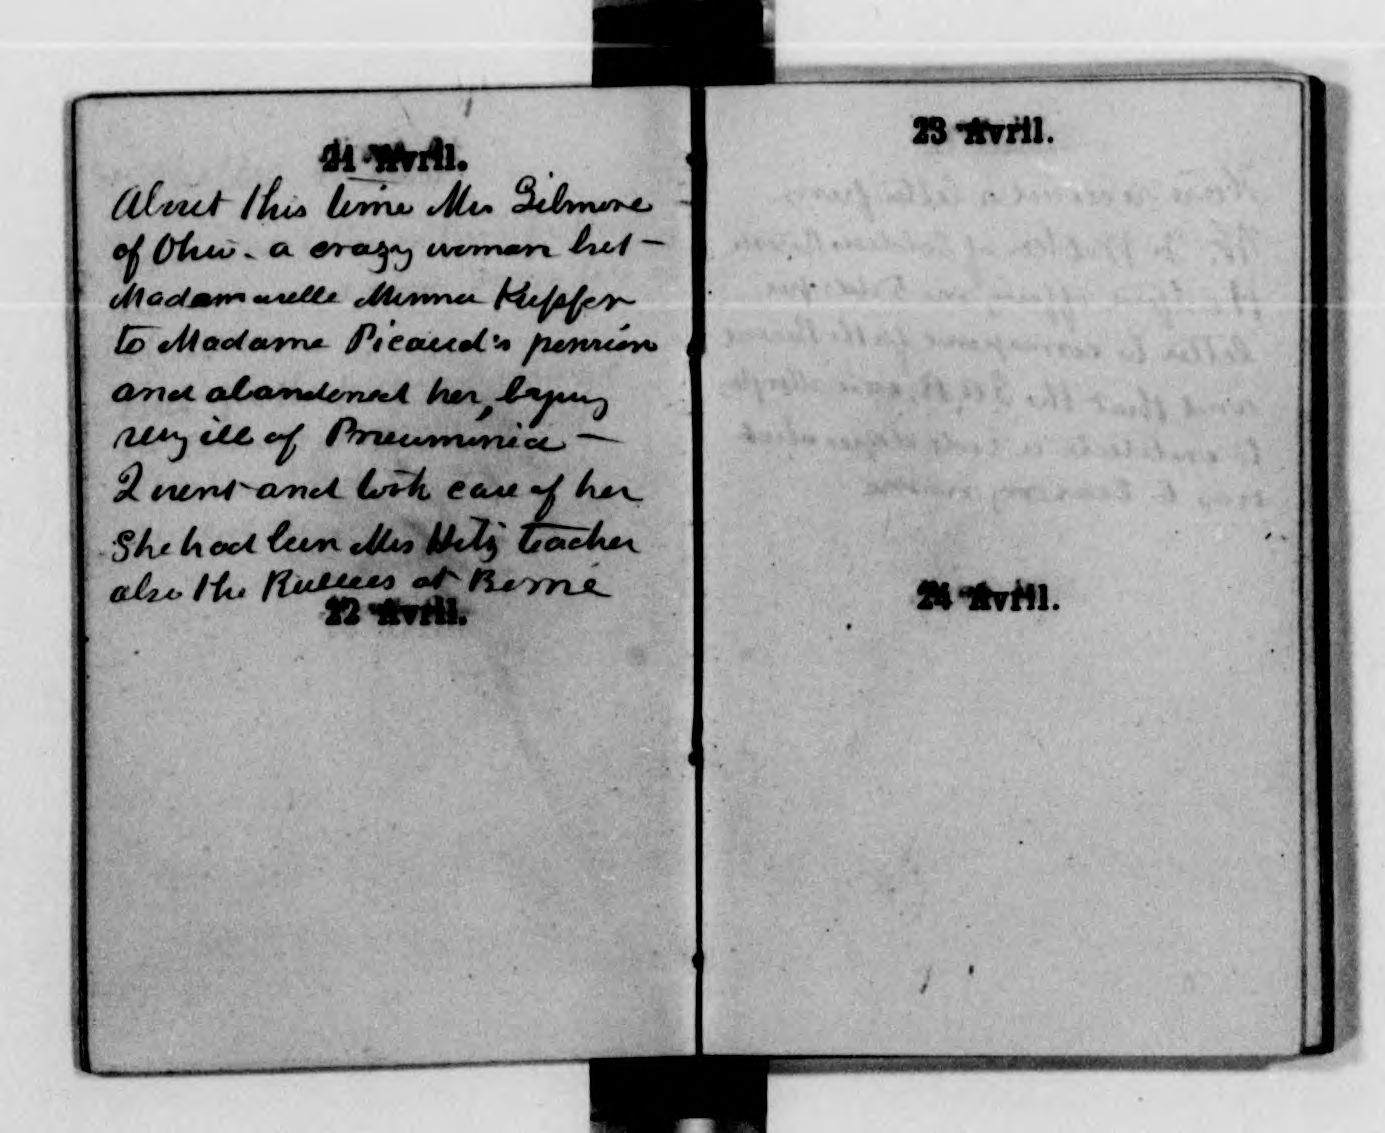 21 Avril.
About this time Mrs Gilmore
of Ohio. a crazy woman but —
Madamaselle Minna Kupfer
to Madame Picaud's pension
and abandoned her,
very ill of Pneumonia —
I went and took care of her
She had been Mrs Hitz teacher
also the at Berne
22 Avril.
23 Avril.
24 Avril.